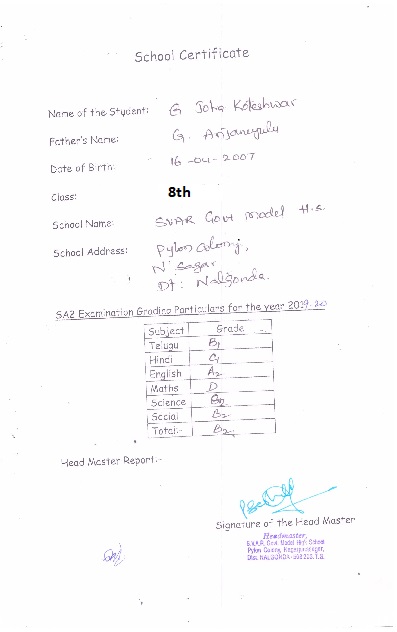 School Certificate
Name of the Student: G Joha Koteshwar
Father's Name: G. Anjaneyulu
Date of Birth: 16-04-2007
Class: 8th
School Name: SVAR Govt model H.S
School Address: Pylon Colony,
N' Sagar
Dt: Nalgonda.
SA2 Examination Grading Particulars for the year 2019-20
Subject Grade
Telugu B1
Hindi C1
English A2
Maths D
Science B2
Social B2
Total:- B2
Head Master Report:-
Signature of the Head Master
Headmaster,
S.V.A.R. Govt. Model High School
Pylon Colony, Nagarjunasagar,
Dist. NALGONDA-508 202. T.S.